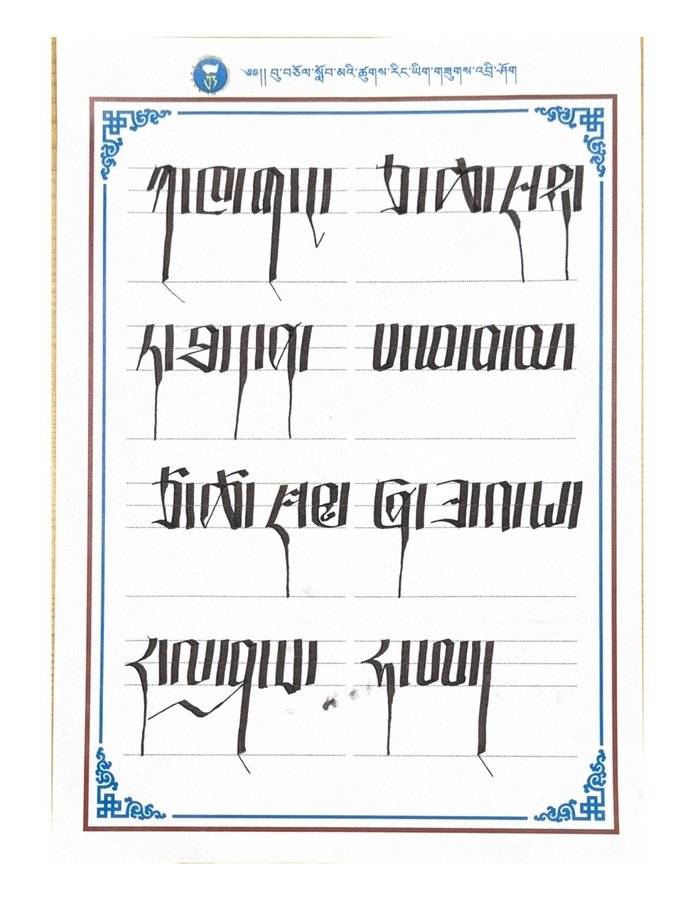 ༄༅།། བུ་བཅོལ་སློབ་མའི་ཚུགས་རིང་ཡིག་གཟུགས་འབྲི་ཤོག
ཀ།ཁ།ག།ང། ཅ།ཆ།ཇ།ཉ།
ཏ།ཐ།ད།ན། པ།ཕ།བ།མ།
ཙ།ཚ།ཛ།ཝ། ཞ།ཟ།འ།ཡ།
ར།ལ།ཤ།ས། ཧ།ཨ།།